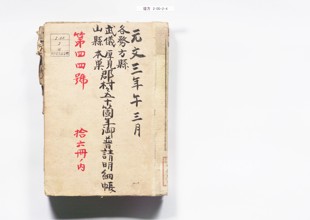 元文三年午三月
各務方縣
武儀厚見郡村五十六箇年御普請明細帳
山縣本巣
第四四號
拾六冊ノ内